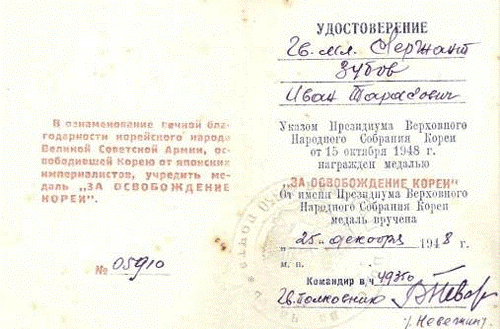 В ознаменование вечной бла-
годарности корейского народа
Великой Советской Армии, ос-
вободившей Корею от японских
империалистов, учредить ме-
даль „ЗА ОСВОБОЖДЕНИЕ
КОРЕИ".
№ 05910
УДОСТОВЕРЕНИЕ
Гв. мл. Сержант
Зубов
Иван Тарасович
Указом Президиума Верховного
Народного Собрания Кореи
от 15 октября 1948 г.
награжден медалью
„ЗА ОСВОБОЖДЕНИЕ КОРЕИ"
От имени Президиума Верховного
Народного Собрания Кореи
медаль вручена
„25" декабря 1948 г.
м. п.
Командир в/ч 49350
Гв. полковник